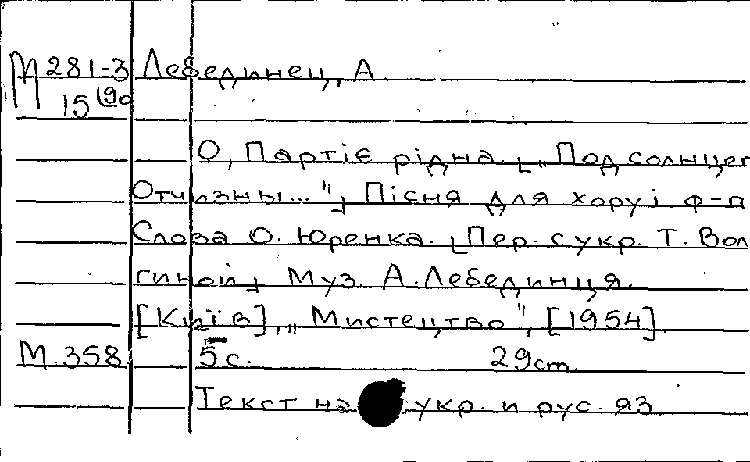 М 281-3 Лебединец, А.
15 (90
О, Партіє рідна. [„Под солнцем
Отчизны..."] Пісня для хору і ф-п
Слова О. Юренка. [Пер. с укр. Т. Вол
гиной] Муз. А. Лебединця.
[Київ], „Мистецтво", [1954].
М. 358 5 с. 29 cm.
Текст на укр. и рус. яз.